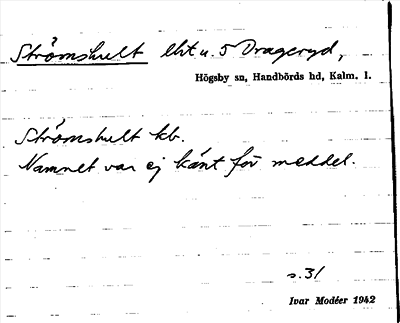 Strömshult lht u. 5 Drageryd,
Högsby sn, Handbörds hd, Kalm. l.
Strömshult kb.
Namnet var ej känt för meddel.
s. 31
Ivar Modéer 1942